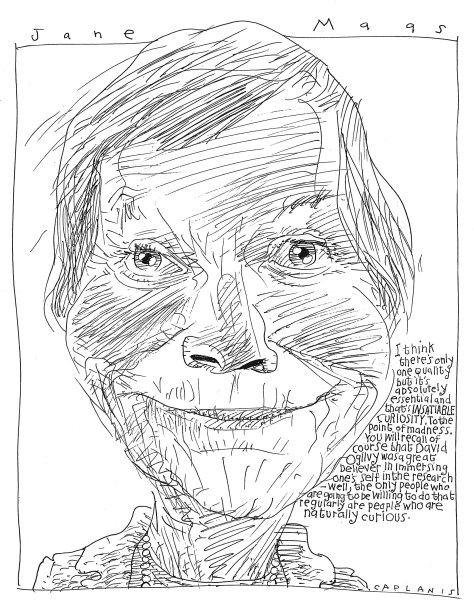 Jane Maas
I think
there's only
one quality
but it's
absolutely
essential and
that's INSATIABLE
CURIOSITY. To the
point of madness.
You will recall of
course that David
Ogilvy was a great
believer in immersing
one's self in the research
— well, the only people who
are going to be willing to do that
regularly are people who are
naturally curious.
CAPLANIS